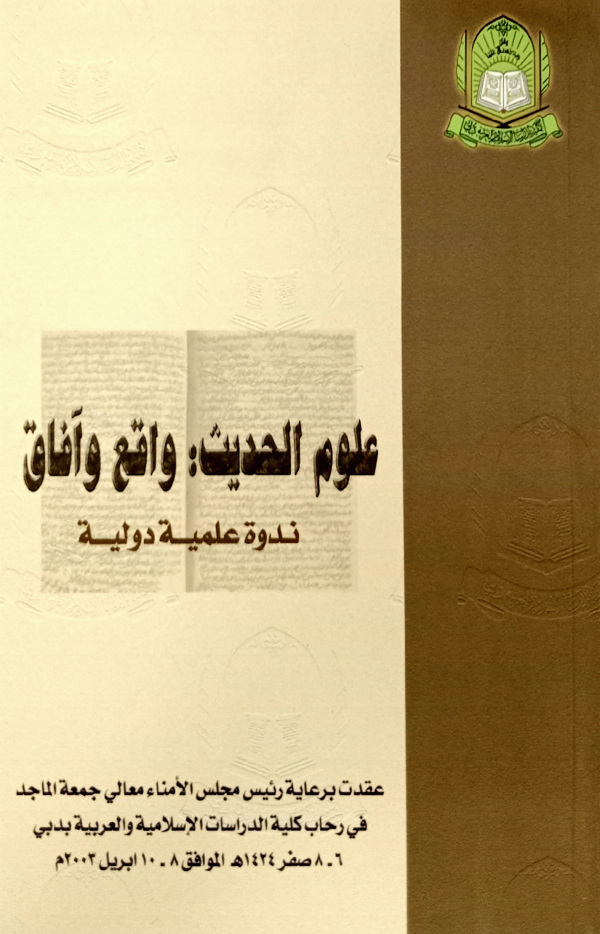 علوم الحديث: واقع وآفاق
ندوة علمية دولية
عقدت برعاية رئيس مجلس الأمناء معالي جمعة الماجد
في رحاب كلية الدراسات الإسلامية والعربية بدبي
٦ - ٨ صفر ١٤٢٤هـ الموافق ٨ - ١٠ ابريل ٢٠٠٣م